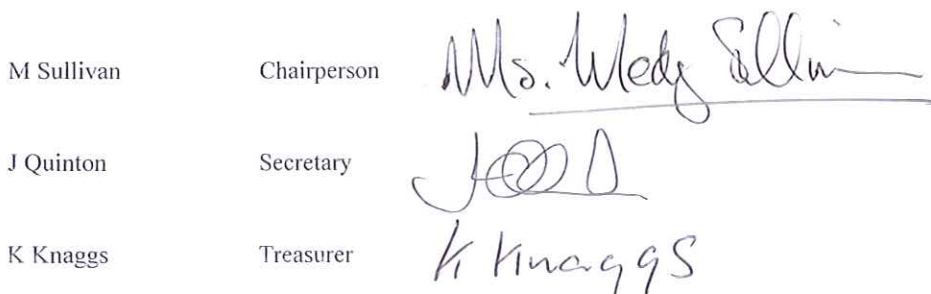 M Sullivan Chairperson Ms.
J Quinton Secretary
K Knaggs Treasurer K Knaggs